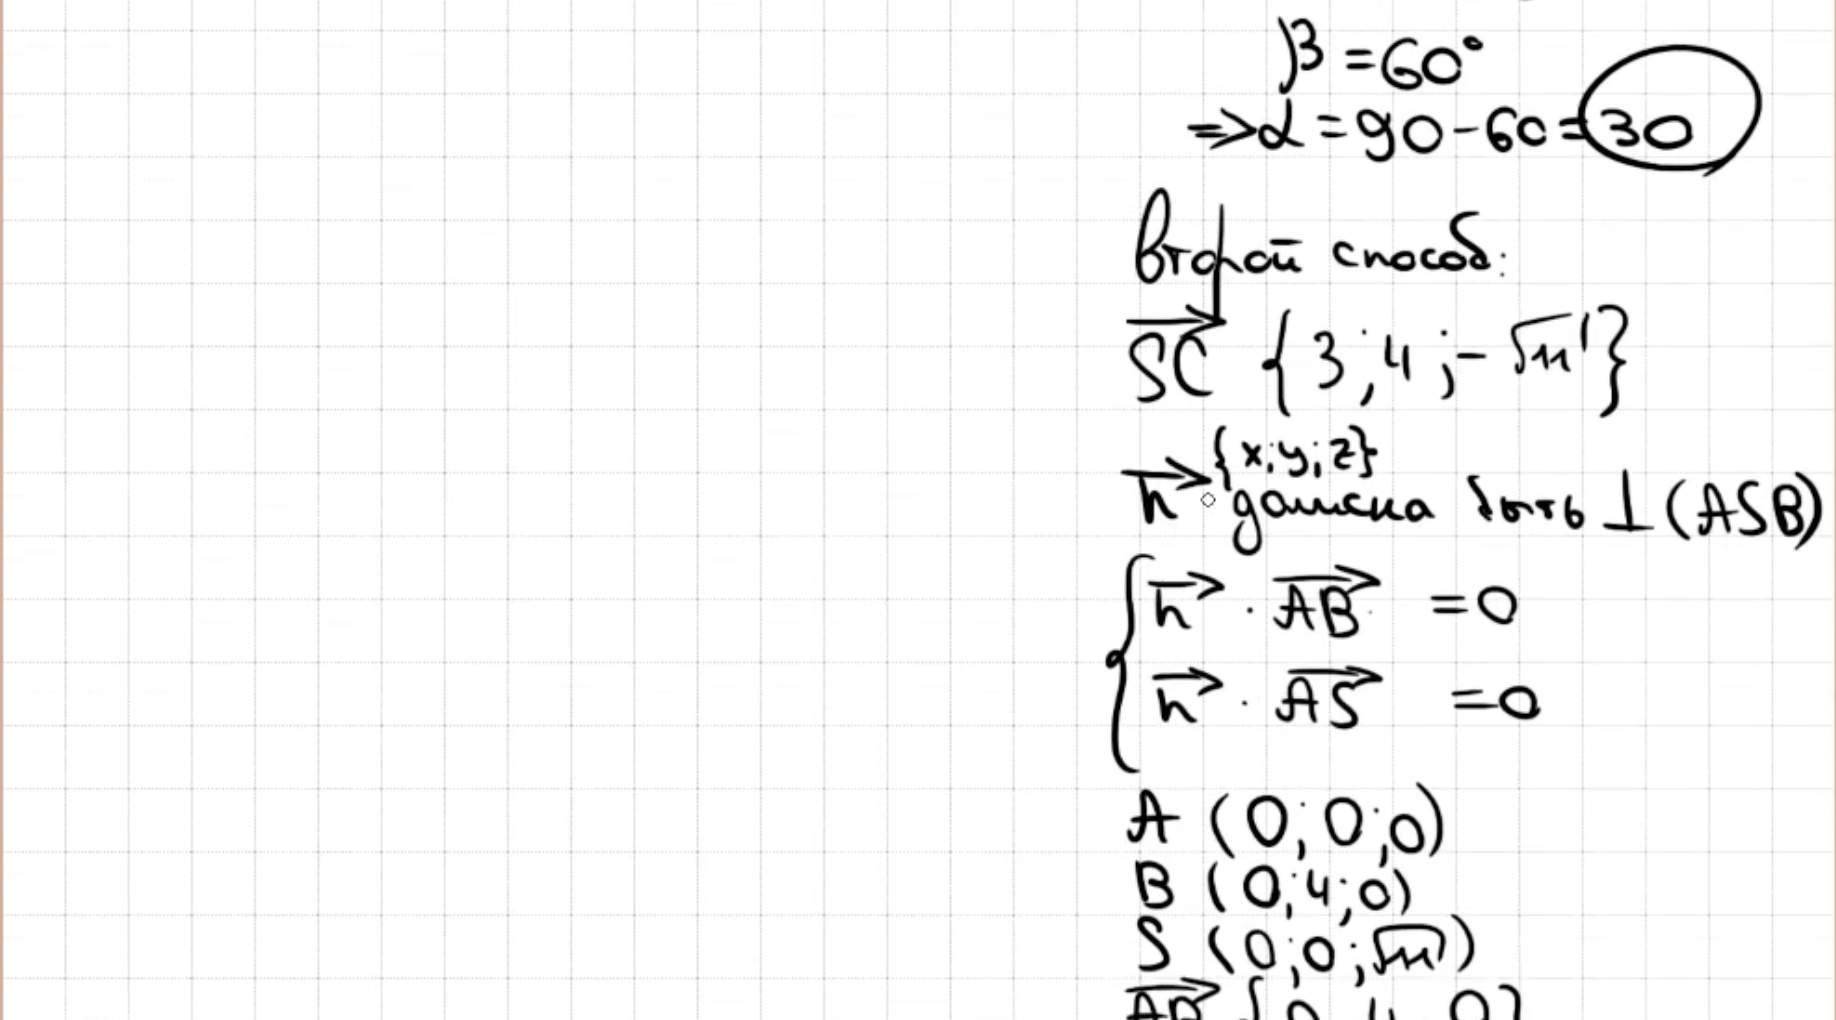 β = 60°
⇒ α = 90 - 60 = 30
Второй способ:
SC {3; 4; -√11}
{x; y; z}
n должна быть ⊥ (ASB)
n · AB = 0
n · AS = 0
A (0; 0; 0)
B (0; 4; 0)
S (0; 0; √11)
AB {0, 4, 0}